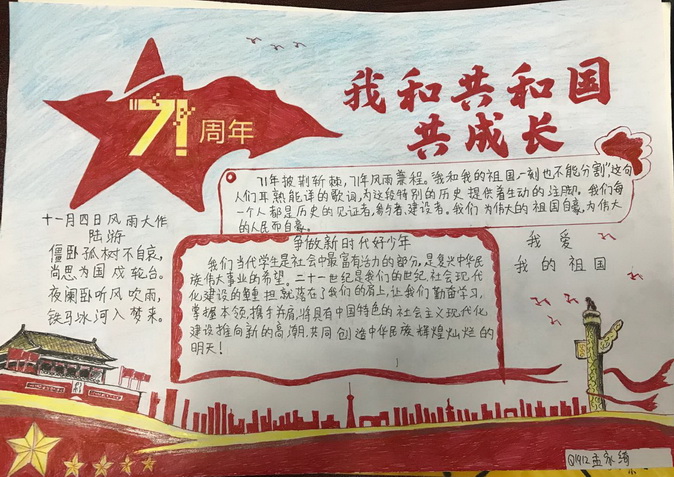 71周年
我和共和国
共成长
71年披荆斩棘，71年风雨兼程。"我和我的祖国一刻也不能分割"这句
人们耳熟能详的歌词，为这段特别的历史提供着生动的注脚。我们每
一个人都是历史的见证者、参与者、建设者。我们为伟大的祖国自豪，为伟大
的人民而自豪。
十一月四日风雨大作
陆游
僵卧孤树不自哀，
尚思为国戍轮台。
夜阑卧听风吹雨，
铁马冰河入梦来。
争做新时代好少年
我们当代学生是社会中最富有活力的部分，是复兴中华民
族伟大事业的希望。二十一世纪是我们的世纪，社会现代
化建设的重担就落在了我们的肩上，让我们勤奋学习，
掌握本领，携手并肩，将具有中国特色的社会主义现代化
建设推向新的高潮，共同创造中华民族辉煌灿烂的
明天！
我爱
我的祖国